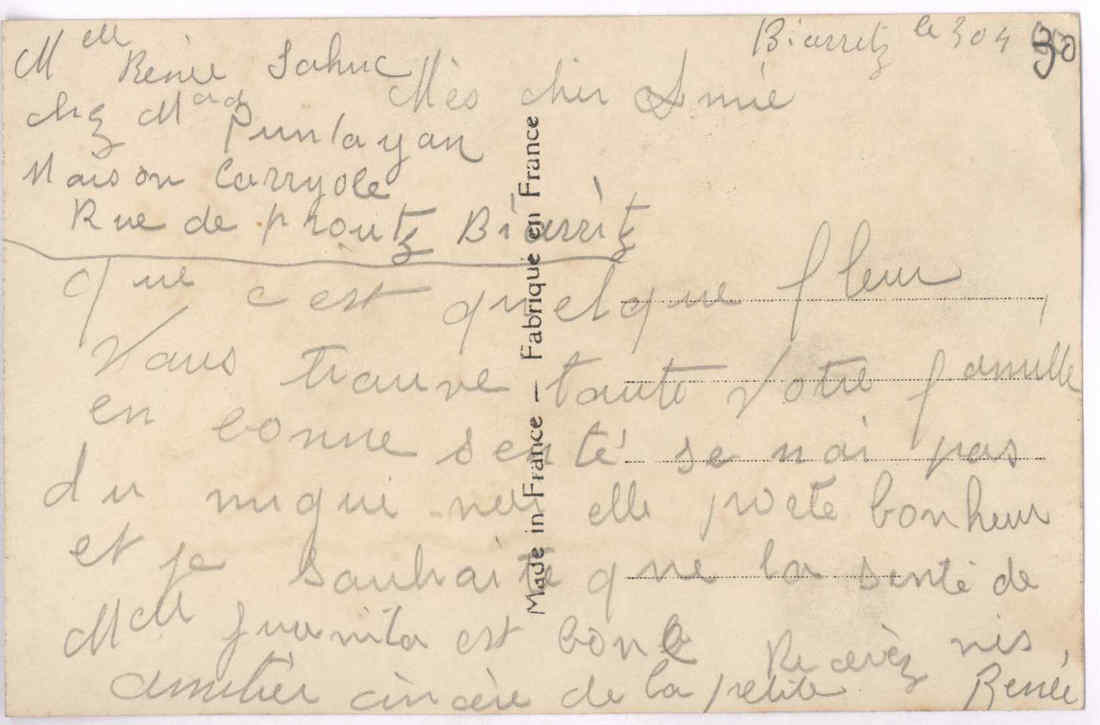 Biarritz le 30 4 30
Mell
Renée Sahuc
chez Mad
Puntayan
Maison Carryole
Rue de proutz Biarritz
Mès cher Amié
que c'est quelque fleur
Vous trauve taute Votre famille
en bonne senté se nai pas
du muguè mes elle porte bonheur
et je sauhaite que la senté de
Mell Juanita est bone Recevèz mes
amitièr cincère de la petite Renée
Made in France — Fabriqué en France